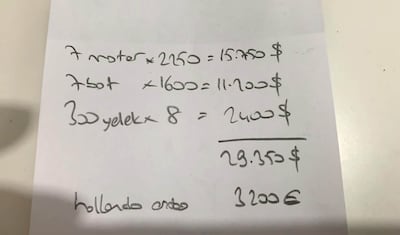 7 motor x 2250 = 15.750 $
7 bot x 1600 = 11.200 $
300 yelek x 8 = 2400 $
29.350 $
hollanda 3200 €